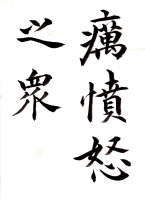 癘憤怒
之衆